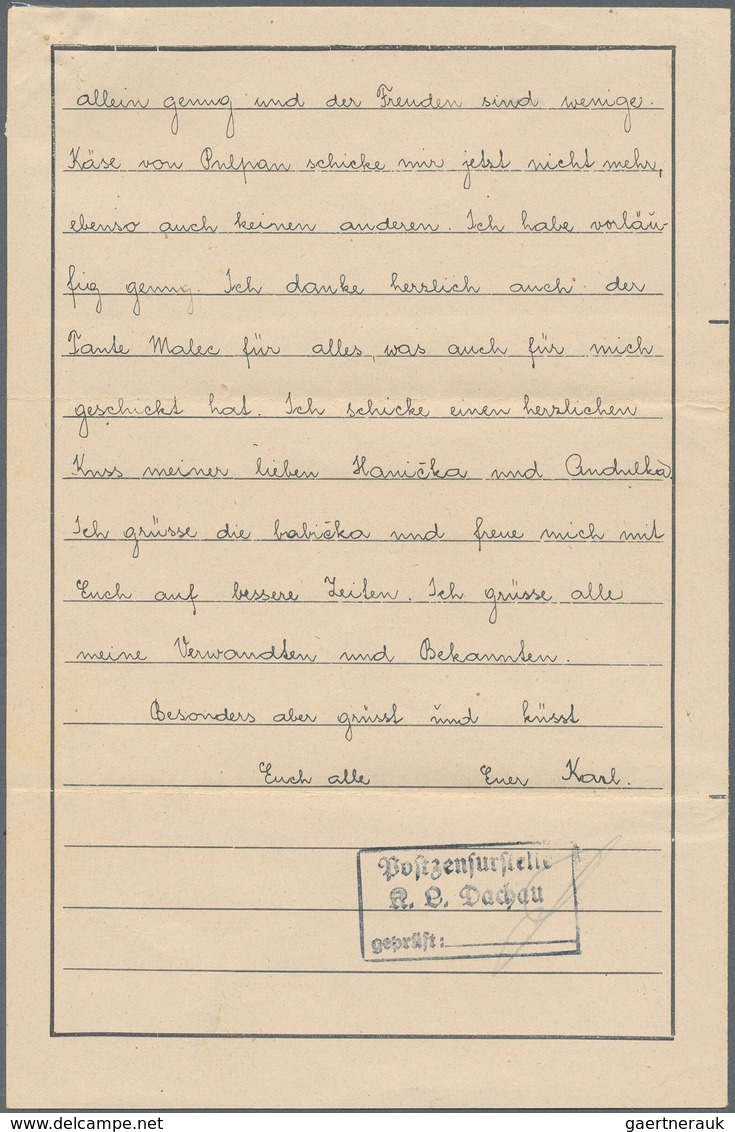 allein genug und der Freuden sind wenige.
Käse von Pulpan schicke mir jetzt nicht mehr,
ebenso auch keinen anderen. Ich habe vorläu-
fig genug. Ich danke herzlich auch der
Tante Malec für alles, was auch für mich
geschickt hat. Ich schicke einen herzlichen
Kuss meiner lieben Hanička und Andulka.
Ich grüsse die babička und freue mich mit
Euch auf bessere Zeiten. Ich grüsse alle
meine Verwandten und Bekannten.
Besonders aber grüsst und küsst
Euch alle Euer Karl.
Postzensurstelle
K. L. Dachau
geprüft:
gaertnerauk